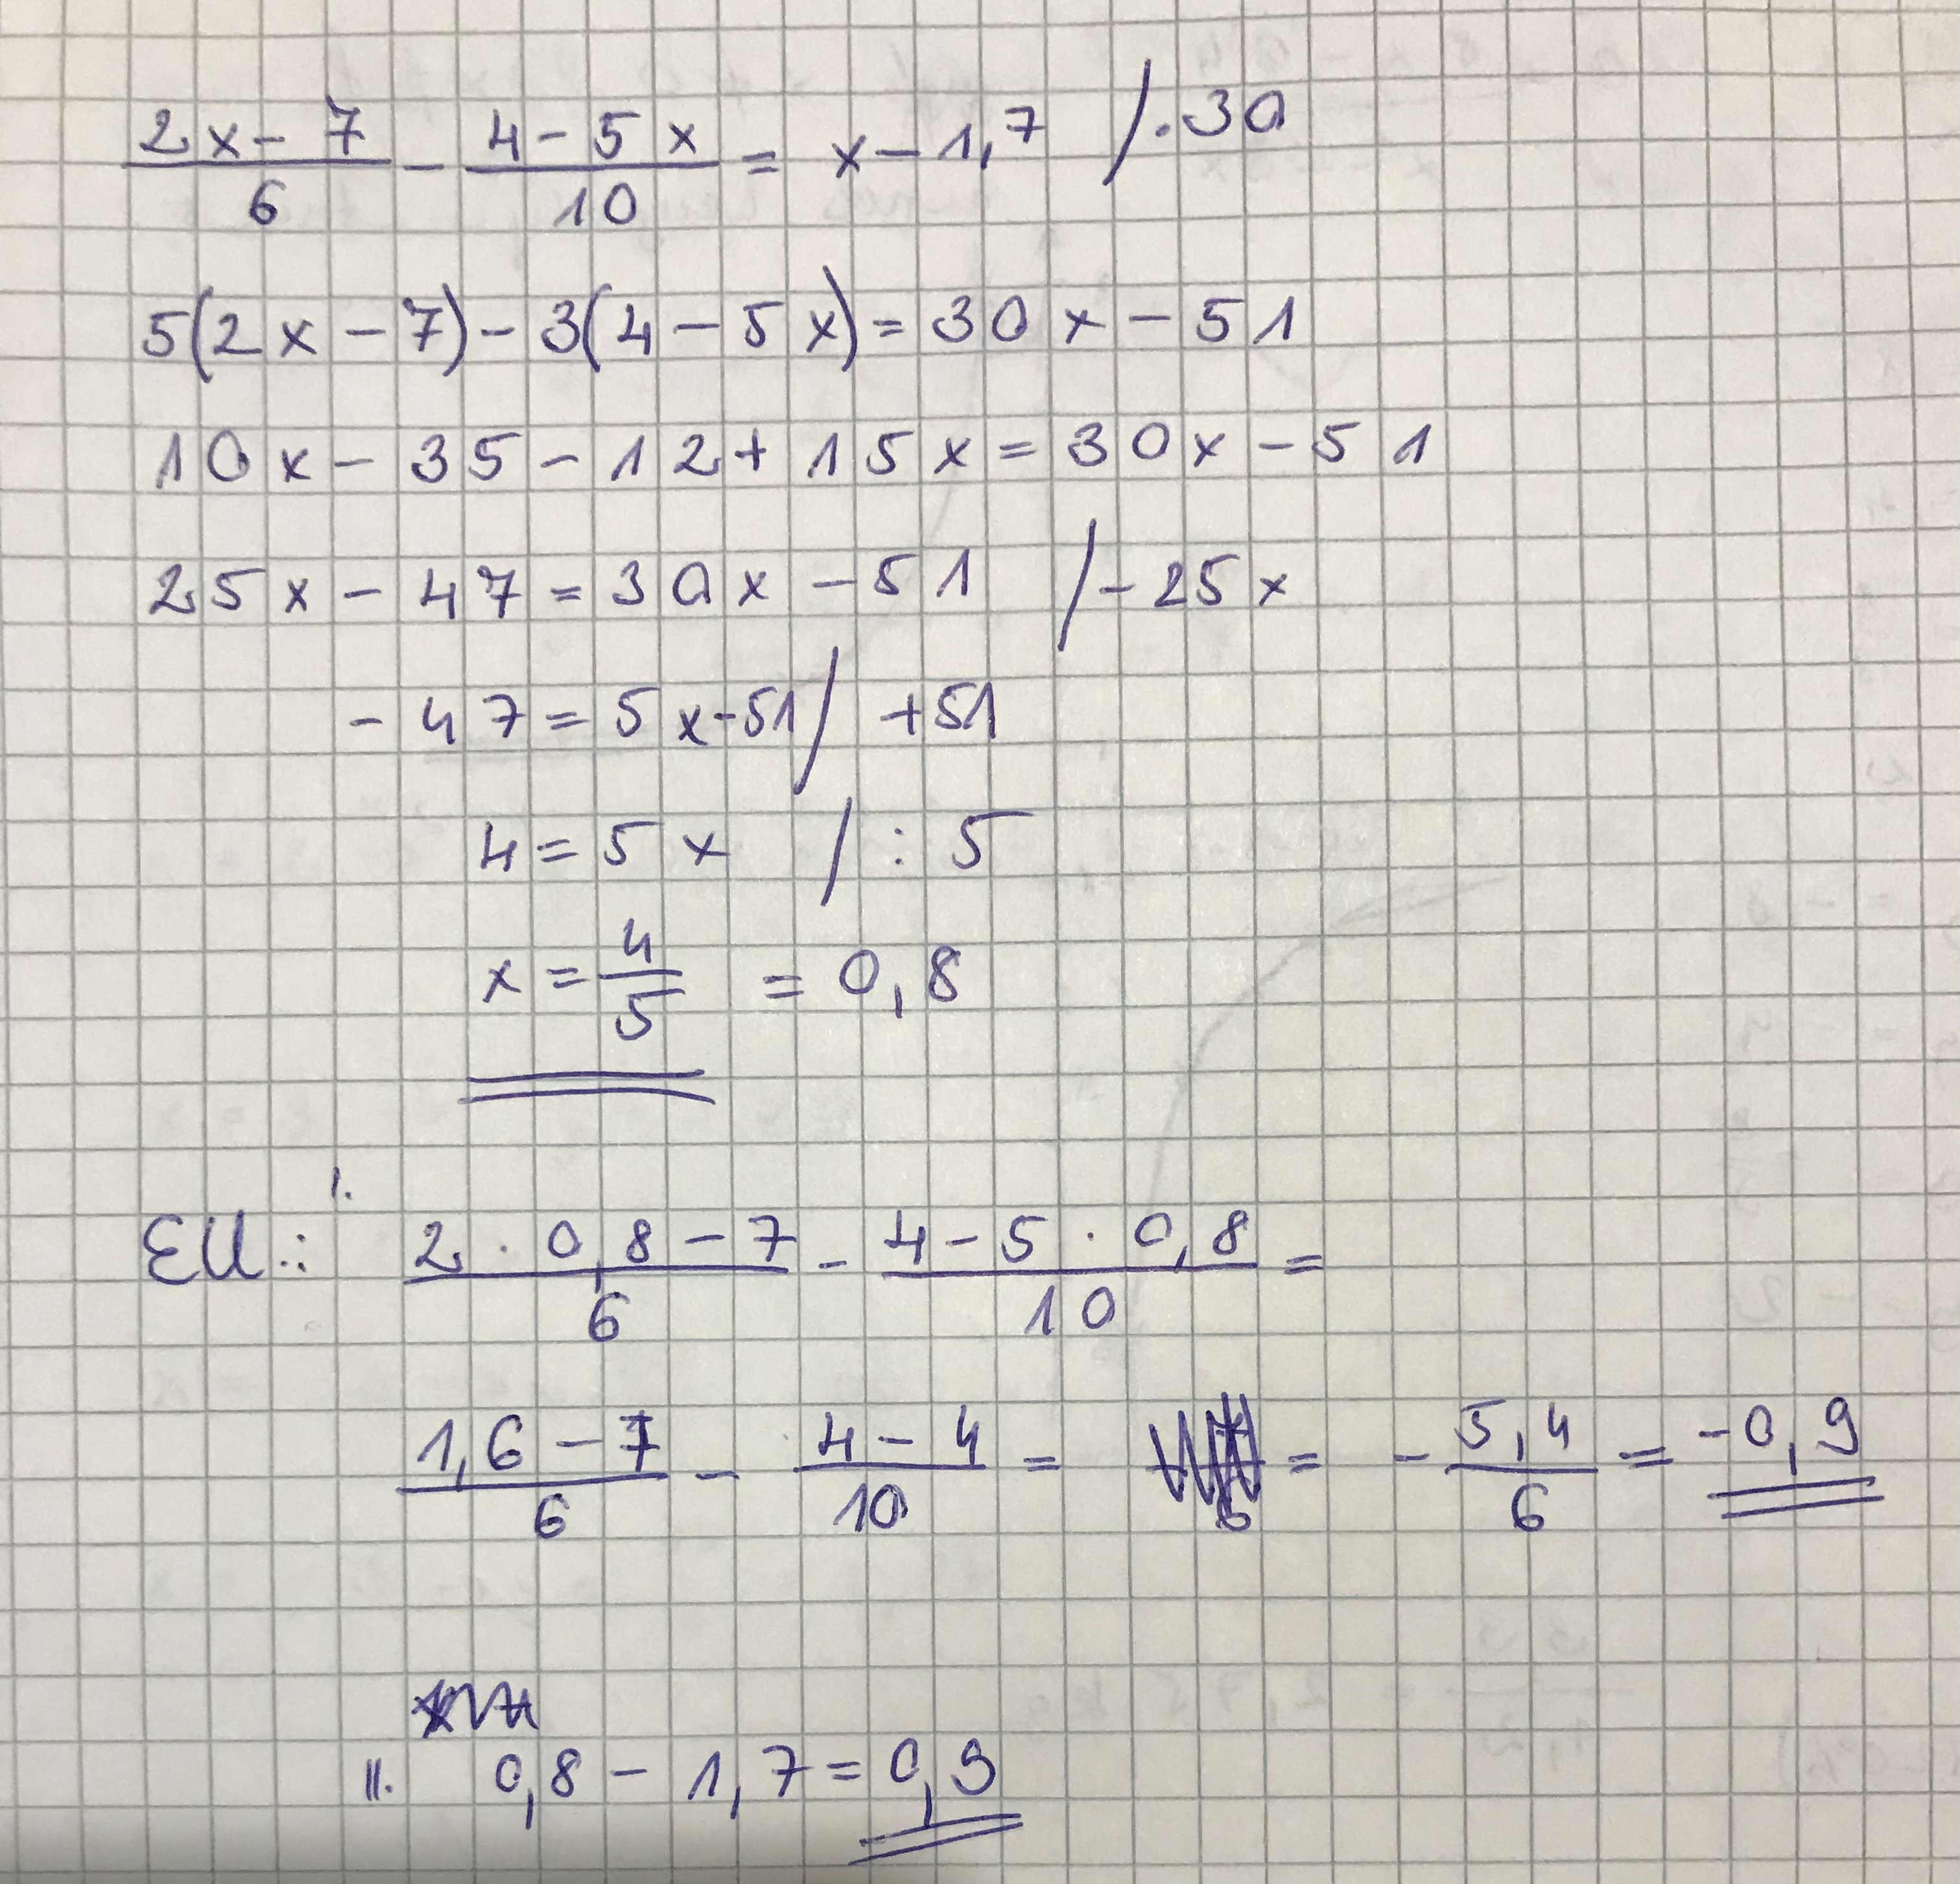 (2x-7)/6 - (4-5x)/10 = x-1,7 /.30
5(2x-7)-3(4-5x)=30x-51
10x-35-12+15x=30x-51
25x-47=30x-51 /-25x
-47=5x-51/ +51
4=5x /:5
x=4/5 =0,8
EU.: I. (2·0,8-7)/6 - (4-5·0,8)/10 =
(1,6-7)/6 - (4-4)/10 = = -5,4/6 = -0,9
II. 0,8-1,7=0,9